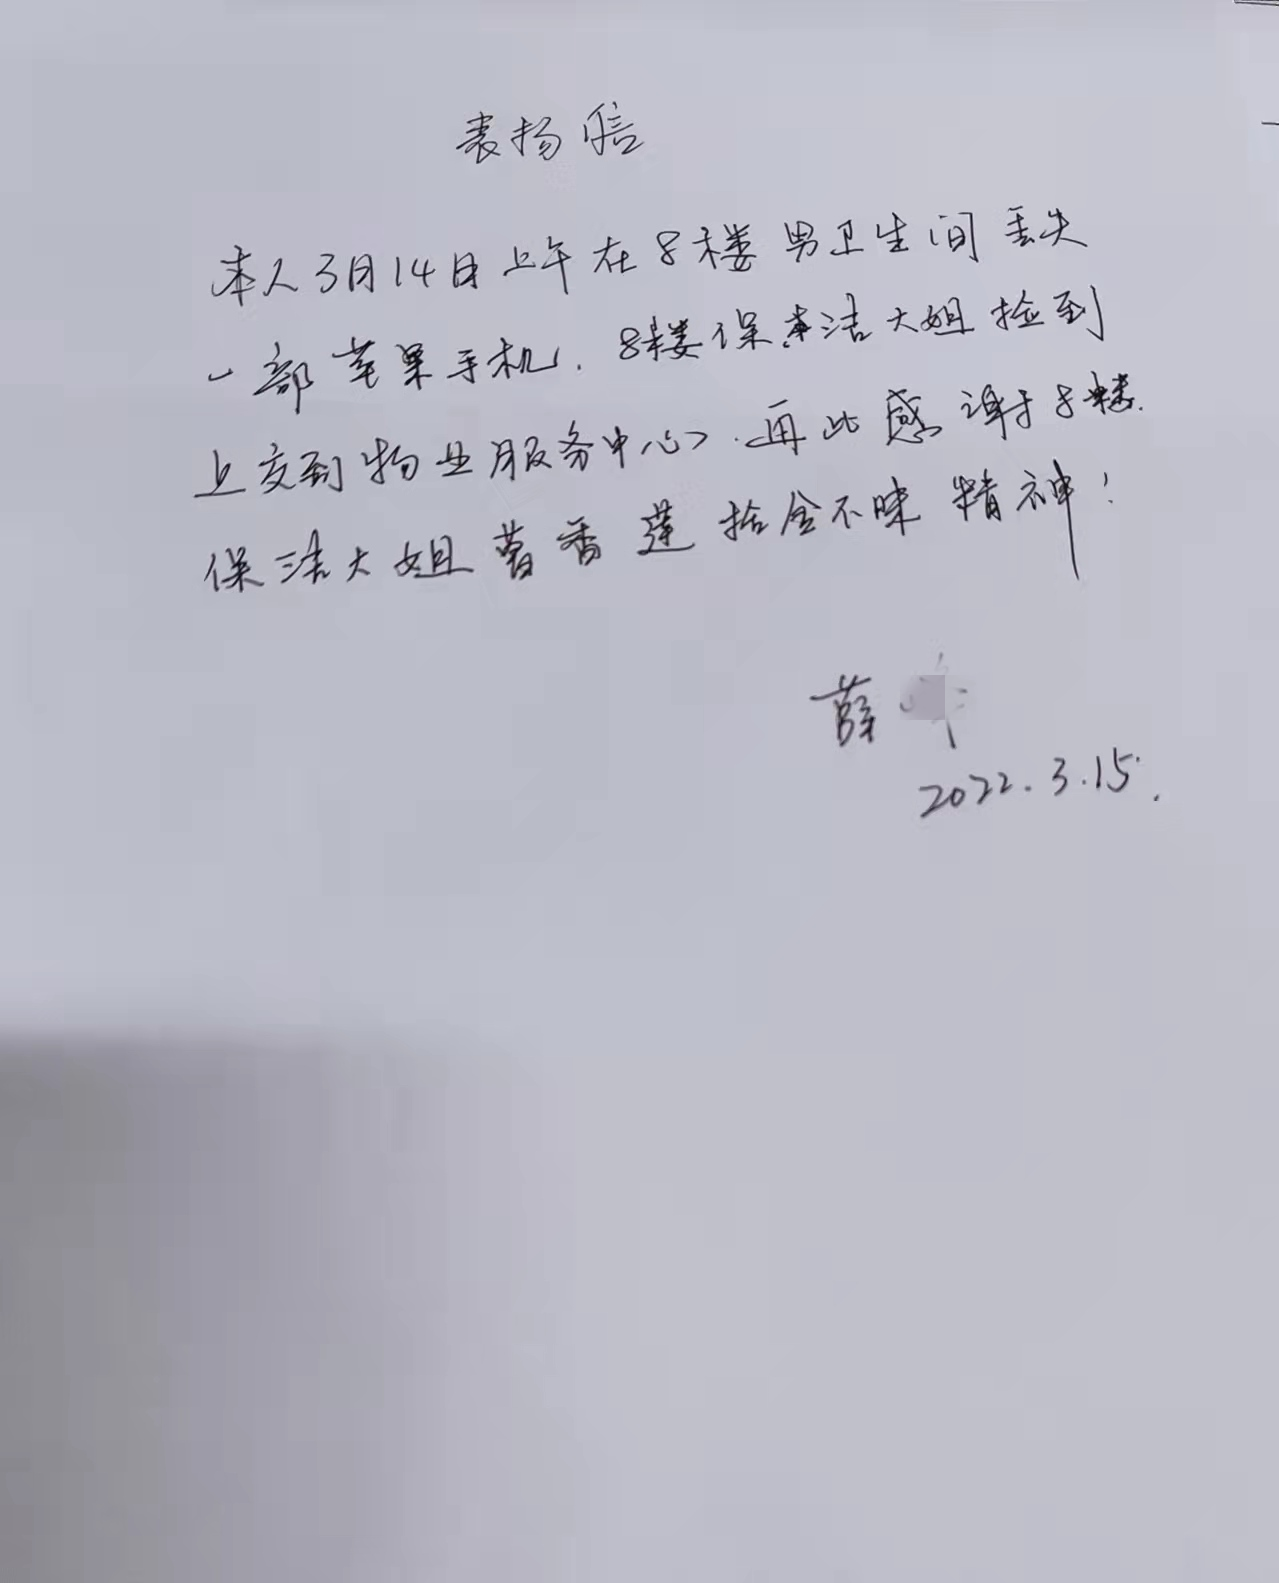 表扬信
本人3月14日上午在8楼男卫生间丢失
一部苹果手机.8楼保洁大姐捡到
上交到物业服务中心.再此感谢于8楼
保洁大姐曹香莲拾金不昧精神！
薛
2022.3.15.